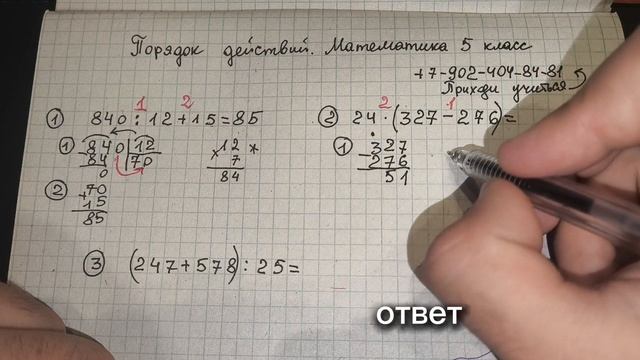 Порядок действий. Математика 5 класс
+7-902-404-84-81
Приходи учиться
1 2
① 840:12+15=85
2 1
② 24·(327-276)=
① 840 12
84 70
0
×12 *
7
84
② 70
+15
85
① 327
-276
51
③ (247+578):25=
ответ